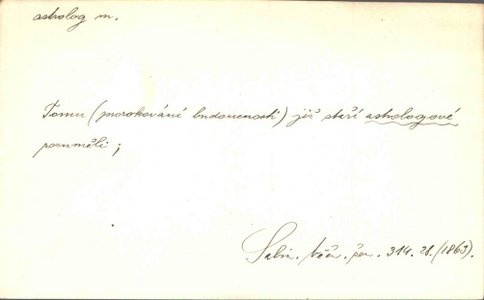 astrolog m.
Tomu (prorokování budoucnosti) již staří astrologové
rozuměli;
Sabin. věčn. žen. 314. 28. (1863).